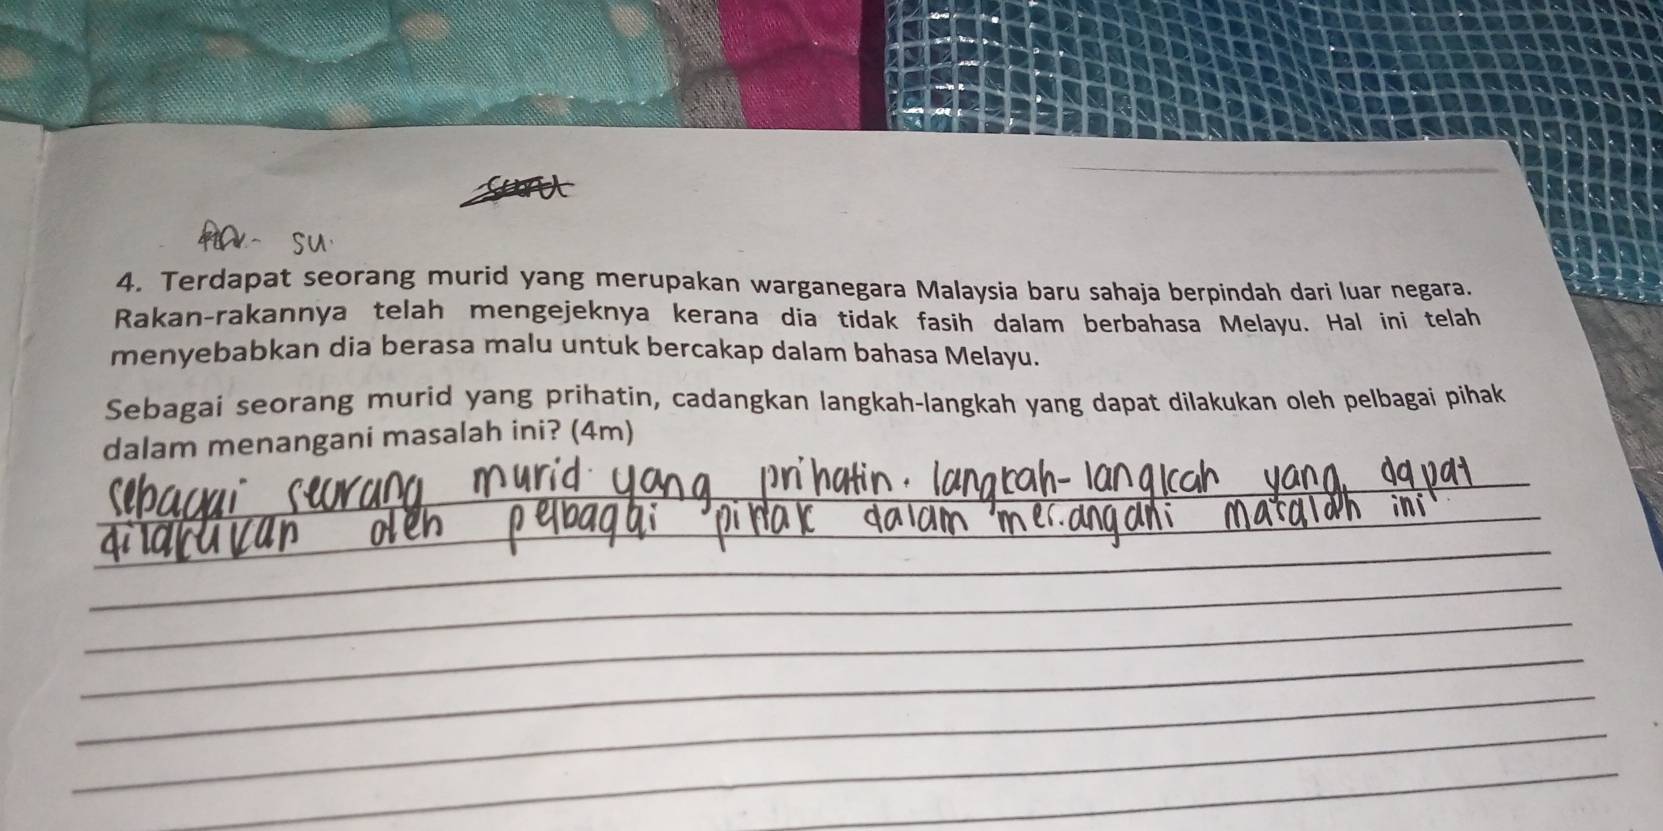 su.
4. Terdapat seorang murid yang merupakan warganegara Malaysia baru sahaja berpindah dari luar negara.
Rakan-rakannya telah mengejeknya kerana dia tidak fasih dalam berbahasa Melayu. Hal ini telah
menyebabkan dia berasa malu untuk bercakap dalam bahasa Melayu.
Sebagai seorang murid yang prihatin, cadangkan langkah-langkah yang dapat dilakukan oleh pelbagai pihak
dalam menangani masalah ini? (4m)
sebagai seorang murid yang prihatin. langkah-langkah yang dapat
dilakukan oleh pelbagai pihak dalam menangani masalah ini